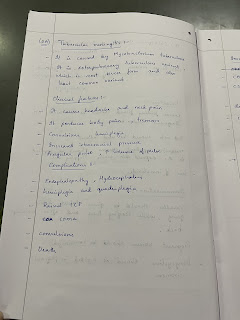 Tubercular meningitis :-
- It is caused by Mycobacterium tuberculosis
- It is extrapulmonary tuberculosis variant
which is most severe form and also
least common variant
Clinical features :-
- It causes headache and neck pain
- It produces body pain, tremors
- Convulsions, hemiplegia
- Increased intracranial pressure
- Irregular pulse,
Complications :-
- Encephalopathy, Hydrocephalus
- hemiplegia and quadriplegia
- Raised ICT
- coma
- convulsions
- Death